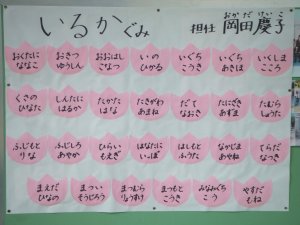 いるかぐみ
担任 岡田慶子
おかだけいこ
おくたに ななこ
おさつ ゆうしん
おおはし こなつ
いの ひかる
いぐち こうき
いぐち あきほ
いくしま こころ
くさの ひなた
しんたに はるか
たかた はな
たきがわ あまね
だて なおき
たにざき あずま
たむら しょうた
ふじもと りな
ふじしろ あやか
ひらい もえぎ
はなたに いっぽ
はしもと ふうた
なかじま あやね
てらだ なつき
まえだ ひなの
まつい そうじろう
まつむら りょうすけ
まつもと こうき
みなみぐち こう
やすだ もね